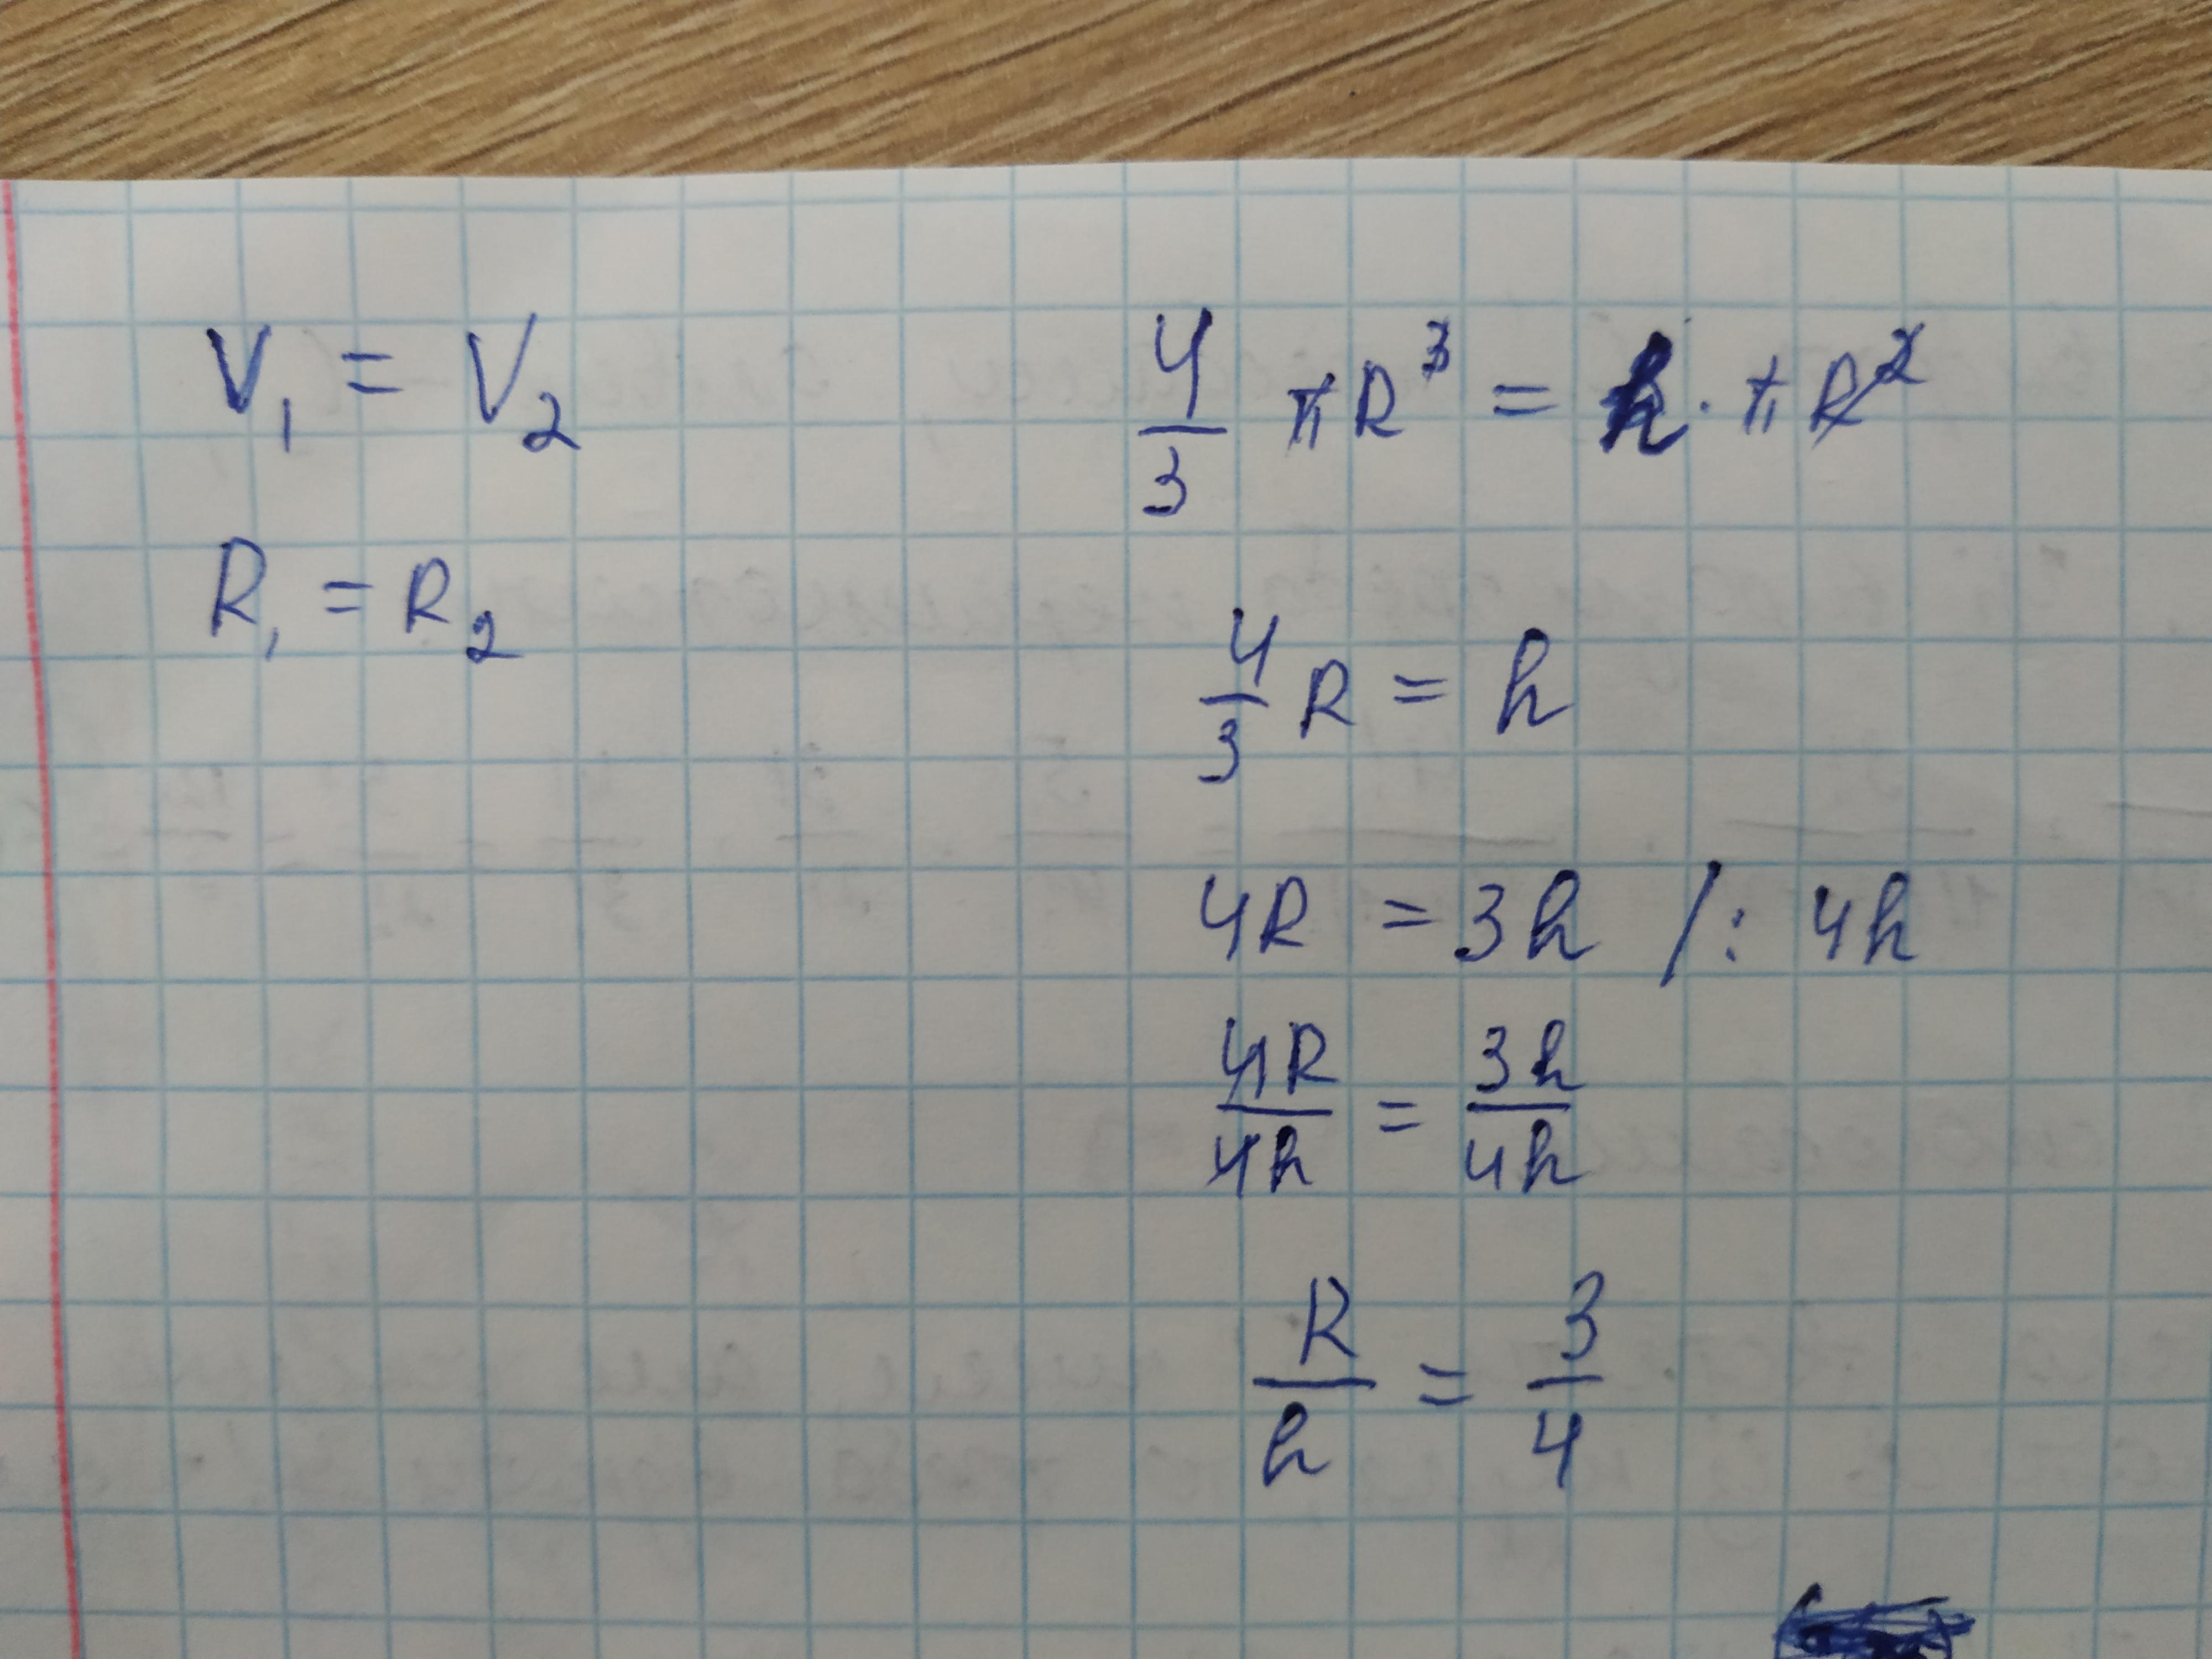 V₁ = V₂
R₁ = R₂
4/3 πR³ = h · πR²
4/3 R = h
4R = 3h /: 4h
4R/4h = 3h/4h
R/h = 3/4